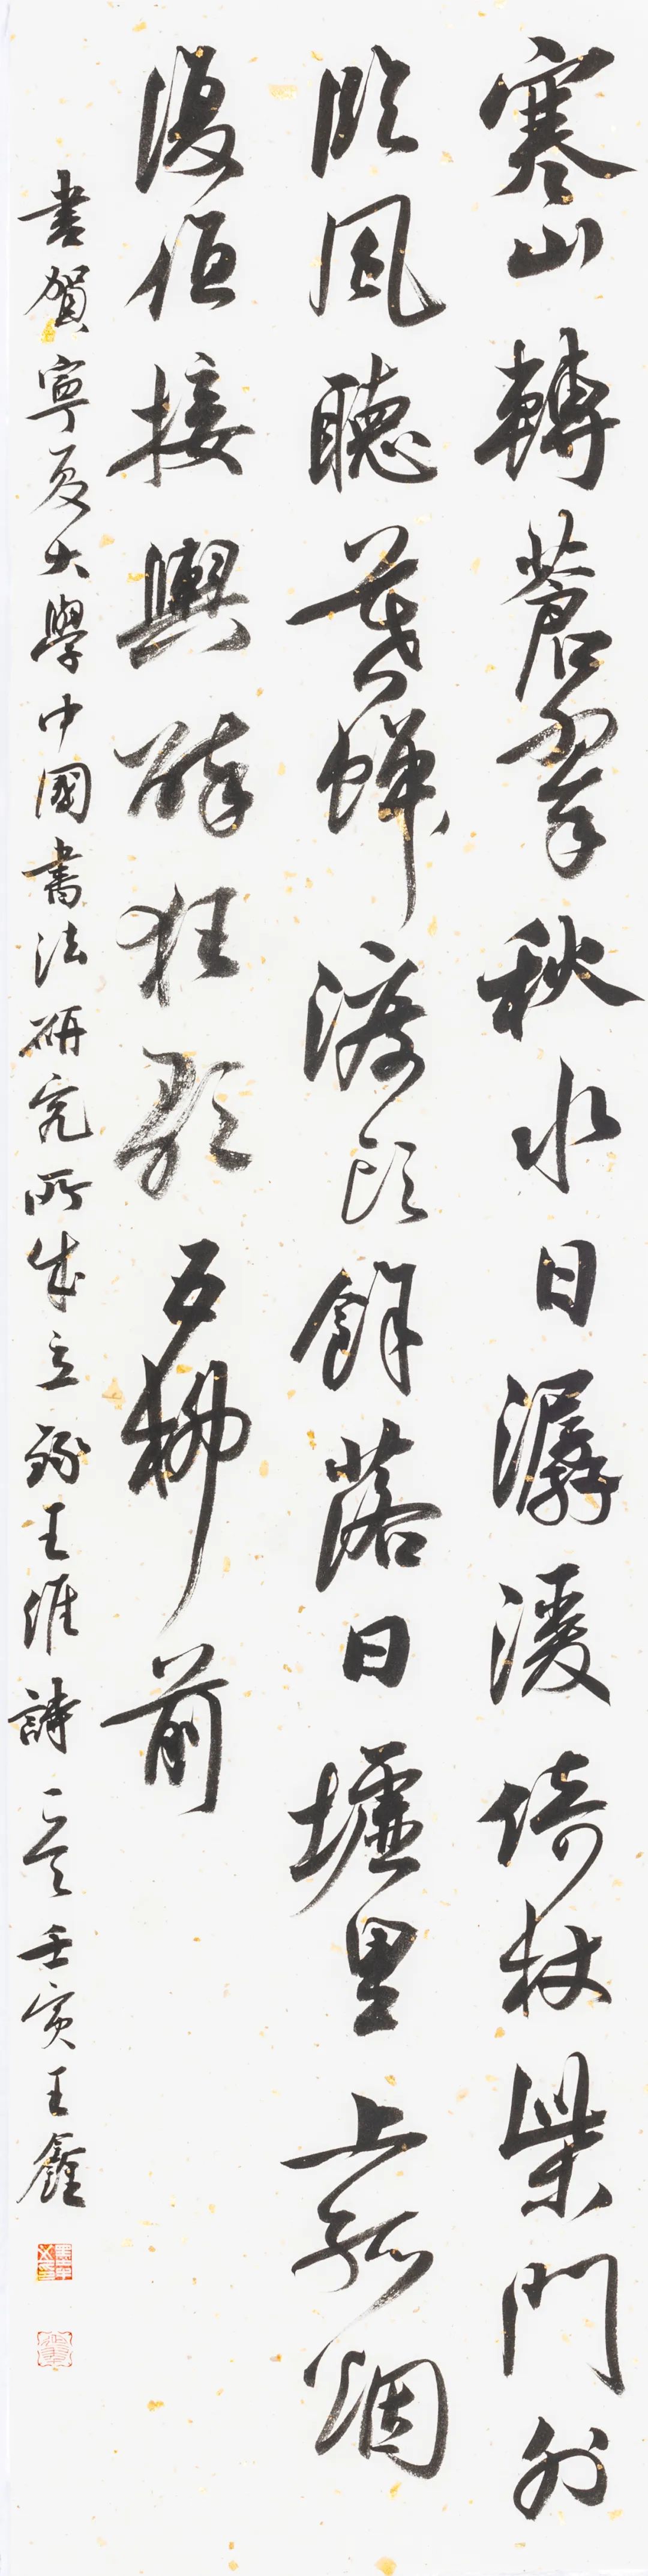 寒山轉蒼翠秋水日潺湲倚杖柴門外
臨風聽暮蟬渡頭餘落日墟里上孤烟
復值接輿醉狂歌五柳前
書賀寧夏大學中國書法研究所成立錄王維詩一首壬寅王鑫